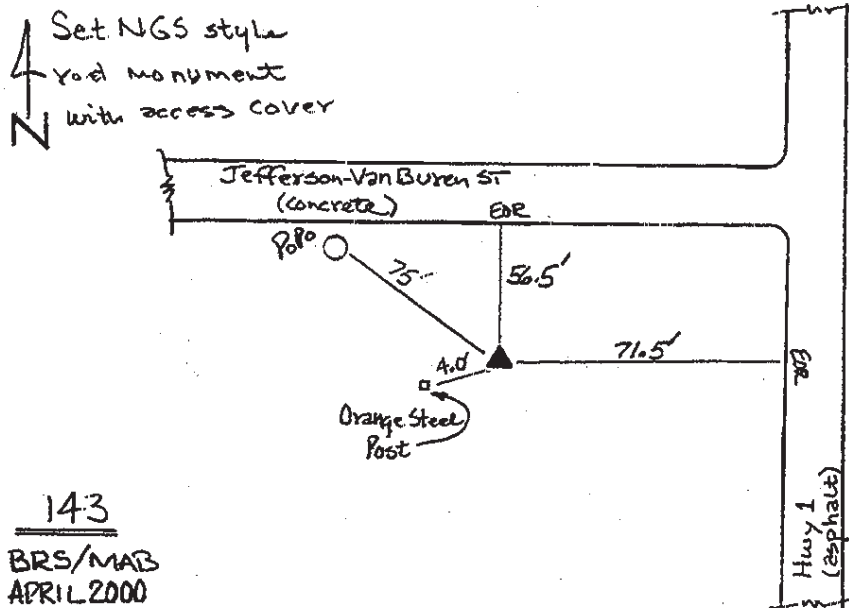 Set NGS style
rod monument
with access cover
N
Jefferson-Van Buren ST
(concrete)
EOR
PoPo
75'
56.5'
71.5'
EOR
4.0'
Orange Steel
Post
Hwy 1
(asphalt)
143
BRS/MAB
APRIL 2000